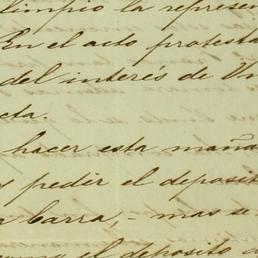 limpio la represen
En el acto protesta
del interés de Un
cta.
hacer esta maña
y pedir el deposit
a barra, - mas se
el deposito a